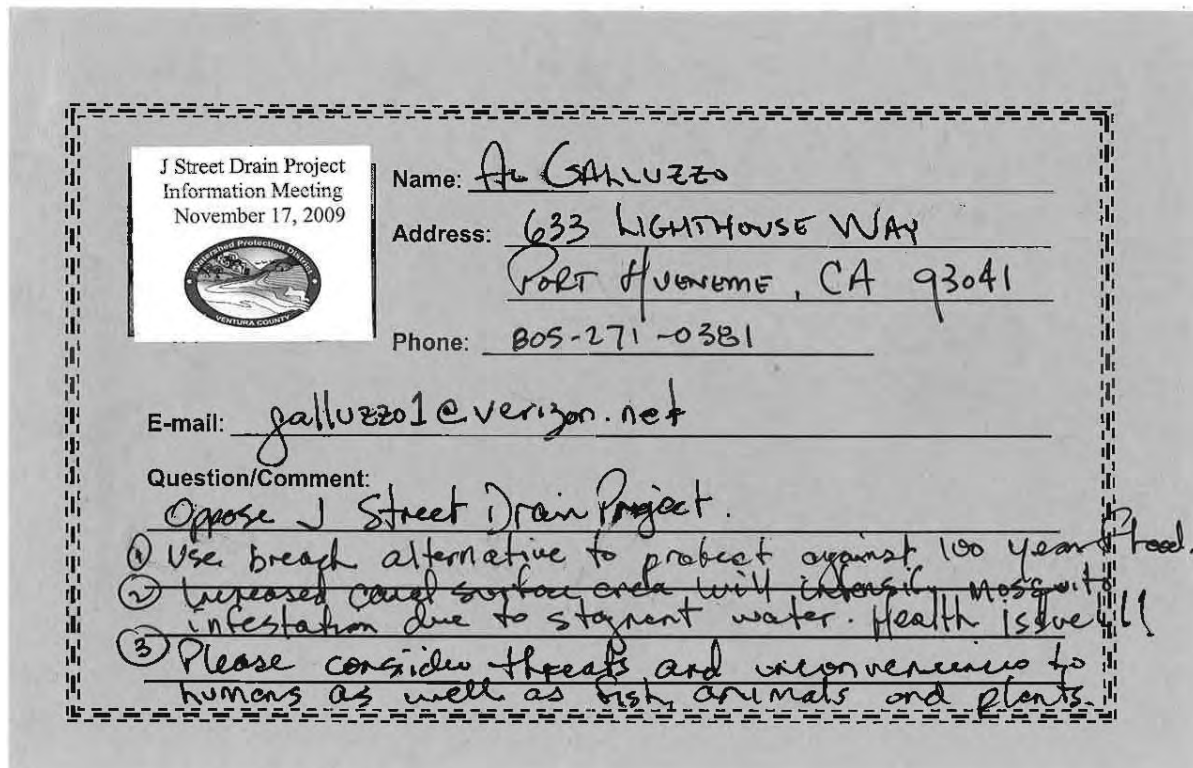 J Street Drain Project
Information Meeting
November 17, 2009
Watershed Protection District
VENTURA COUNTY
Name: AL GALLUZZO
Address: 633 LIGHTHOUSE WAY
PORT HUENEME, CA 93041
Phone: 805-271-0381
E-mail: galluzzo1@verizon.net
Question/Comment:
Oppose J Street Drain Project.
① Use breach alternative to protect against 100 year flood.
② Increased canal surface area will intensify mosquito
infestation due to stagnent water. Health issue!!!
③ Please consider threats and inconveniences to
humans as well as fish, animals and plants.